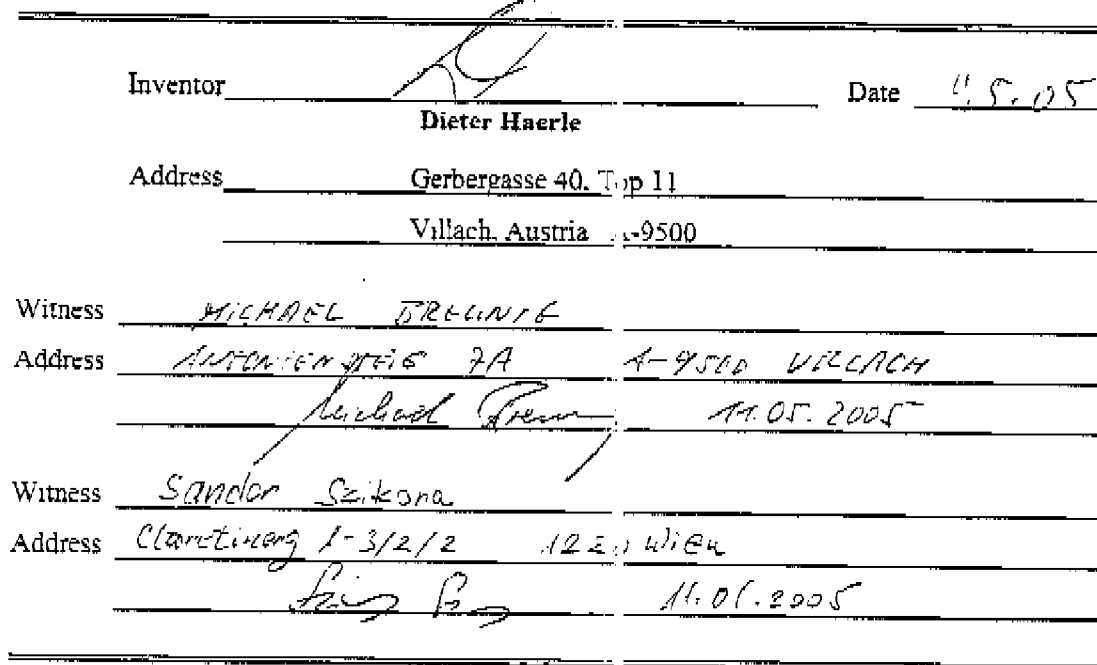 Inventor Date 11.5.05
Dieter Haerle
Address Gerbergasse 40, Top 11
Villach, Austria A-9500
Witness MICHAEL BREUNIG
Address 7A A-9500 VILLACH
Michael 11.05.2005
Witness Sandor Szikora
Address 1-3/2/2 Wien
2005